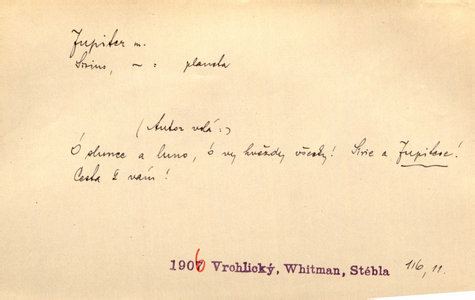 Jupiter m.
Sirius, ~ : planeta
(Autor volá:)
Ó slunce a luno, ó vy hvězdy všecky! Sirie a Jupitere!
Cesta k vám!
1906 Vrchlický, Whitman, Stébla 116, 11.